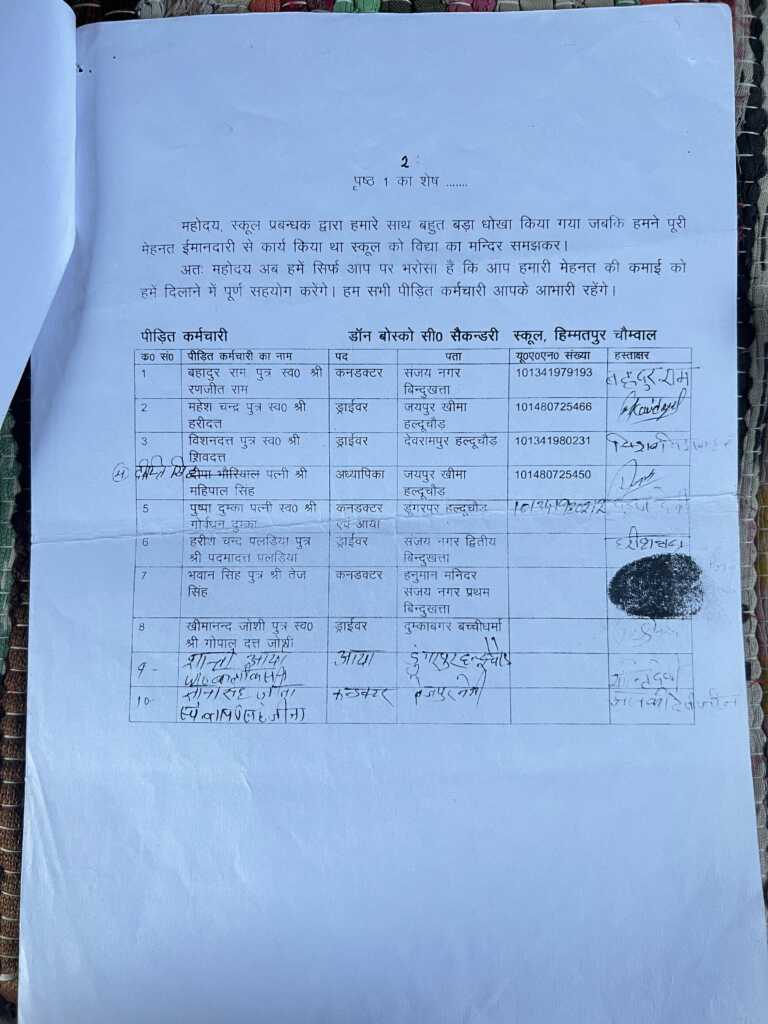 2
पृष्ठ 1 का शेष .......
महोदय, स्कूल प्रबन्धक द्वारा हमारे साथ बहुत बड़ा धोखा किया गया जबकि हमने पूरी
मेहनत ईमानदारी से कार्य किया था स्कूल को विद्या का मन्दिर समझकर।
अतः महोदय अब हमें सिर्फ आप पर भरोसा है कि आप हमारी मेहनत की कमाई को
हमें दिलाने में पूर्ण सहयोग करेंगे। हम सभी पीड़ित कर्मचारी आपके आभारी रहेंगे।
पीड़ित कर्मचारी डॉन बोस्को सी0 सैकन्डरी स्कूल, हिम्मतपुर चौम्वाल
क0 सं0 पीड़ित कर्मचारी का नाम पद पता यू0ए0एन0 संख्या हस्ताक्षर
1 बहादुर राम पुत्र स्व0 श्री कनडक्टर संजय नगर 101341979193 बहादुर राम
रणजीत राम बिन्दुखत्ता
2 महेश चन्द्र पुत्र स्व0 श्री ड्राईवर जयपुर खीमा 101480725466
हरीदत्त हल्दूचौड़
3 विशनदत्त पुत्र स्व0 श्री ड्राईवर देवरामपुर हल्दूचौड़ 101341980231
शिवदत्त
भौरियाल पत्नी श्री अध्यापिका जयपुर खीमा 101480725450
महिपाल सिंह हल्दूचौड़
5 पुष्पा दुम्का पत्नी स्व0 श्री कनडक्टर डुंगरपर हल्दूचौड़
गोर्वधन दुम्का एवं आया
6 हरीश चन्द पलडिया पुत्र ड्राईवर संजय नगर द्वितीय हरीशचन्द्र
श्री पदमादत्त पलडिया बिन्दुखत्ता
7 भवान सिंह पुत्र श्री तेज कनडक्टर हनुमान मनिदर
सिंह संजय नगर प्रथम
बिन्दुखत्ता
8 खीमानन्द जोशी पुत्र स्व0 ड्राईवर दुम्काबगर बच्चीधर्मा
श्री गोपाल दत्त जोशी
9 - शान्ती आया
10-